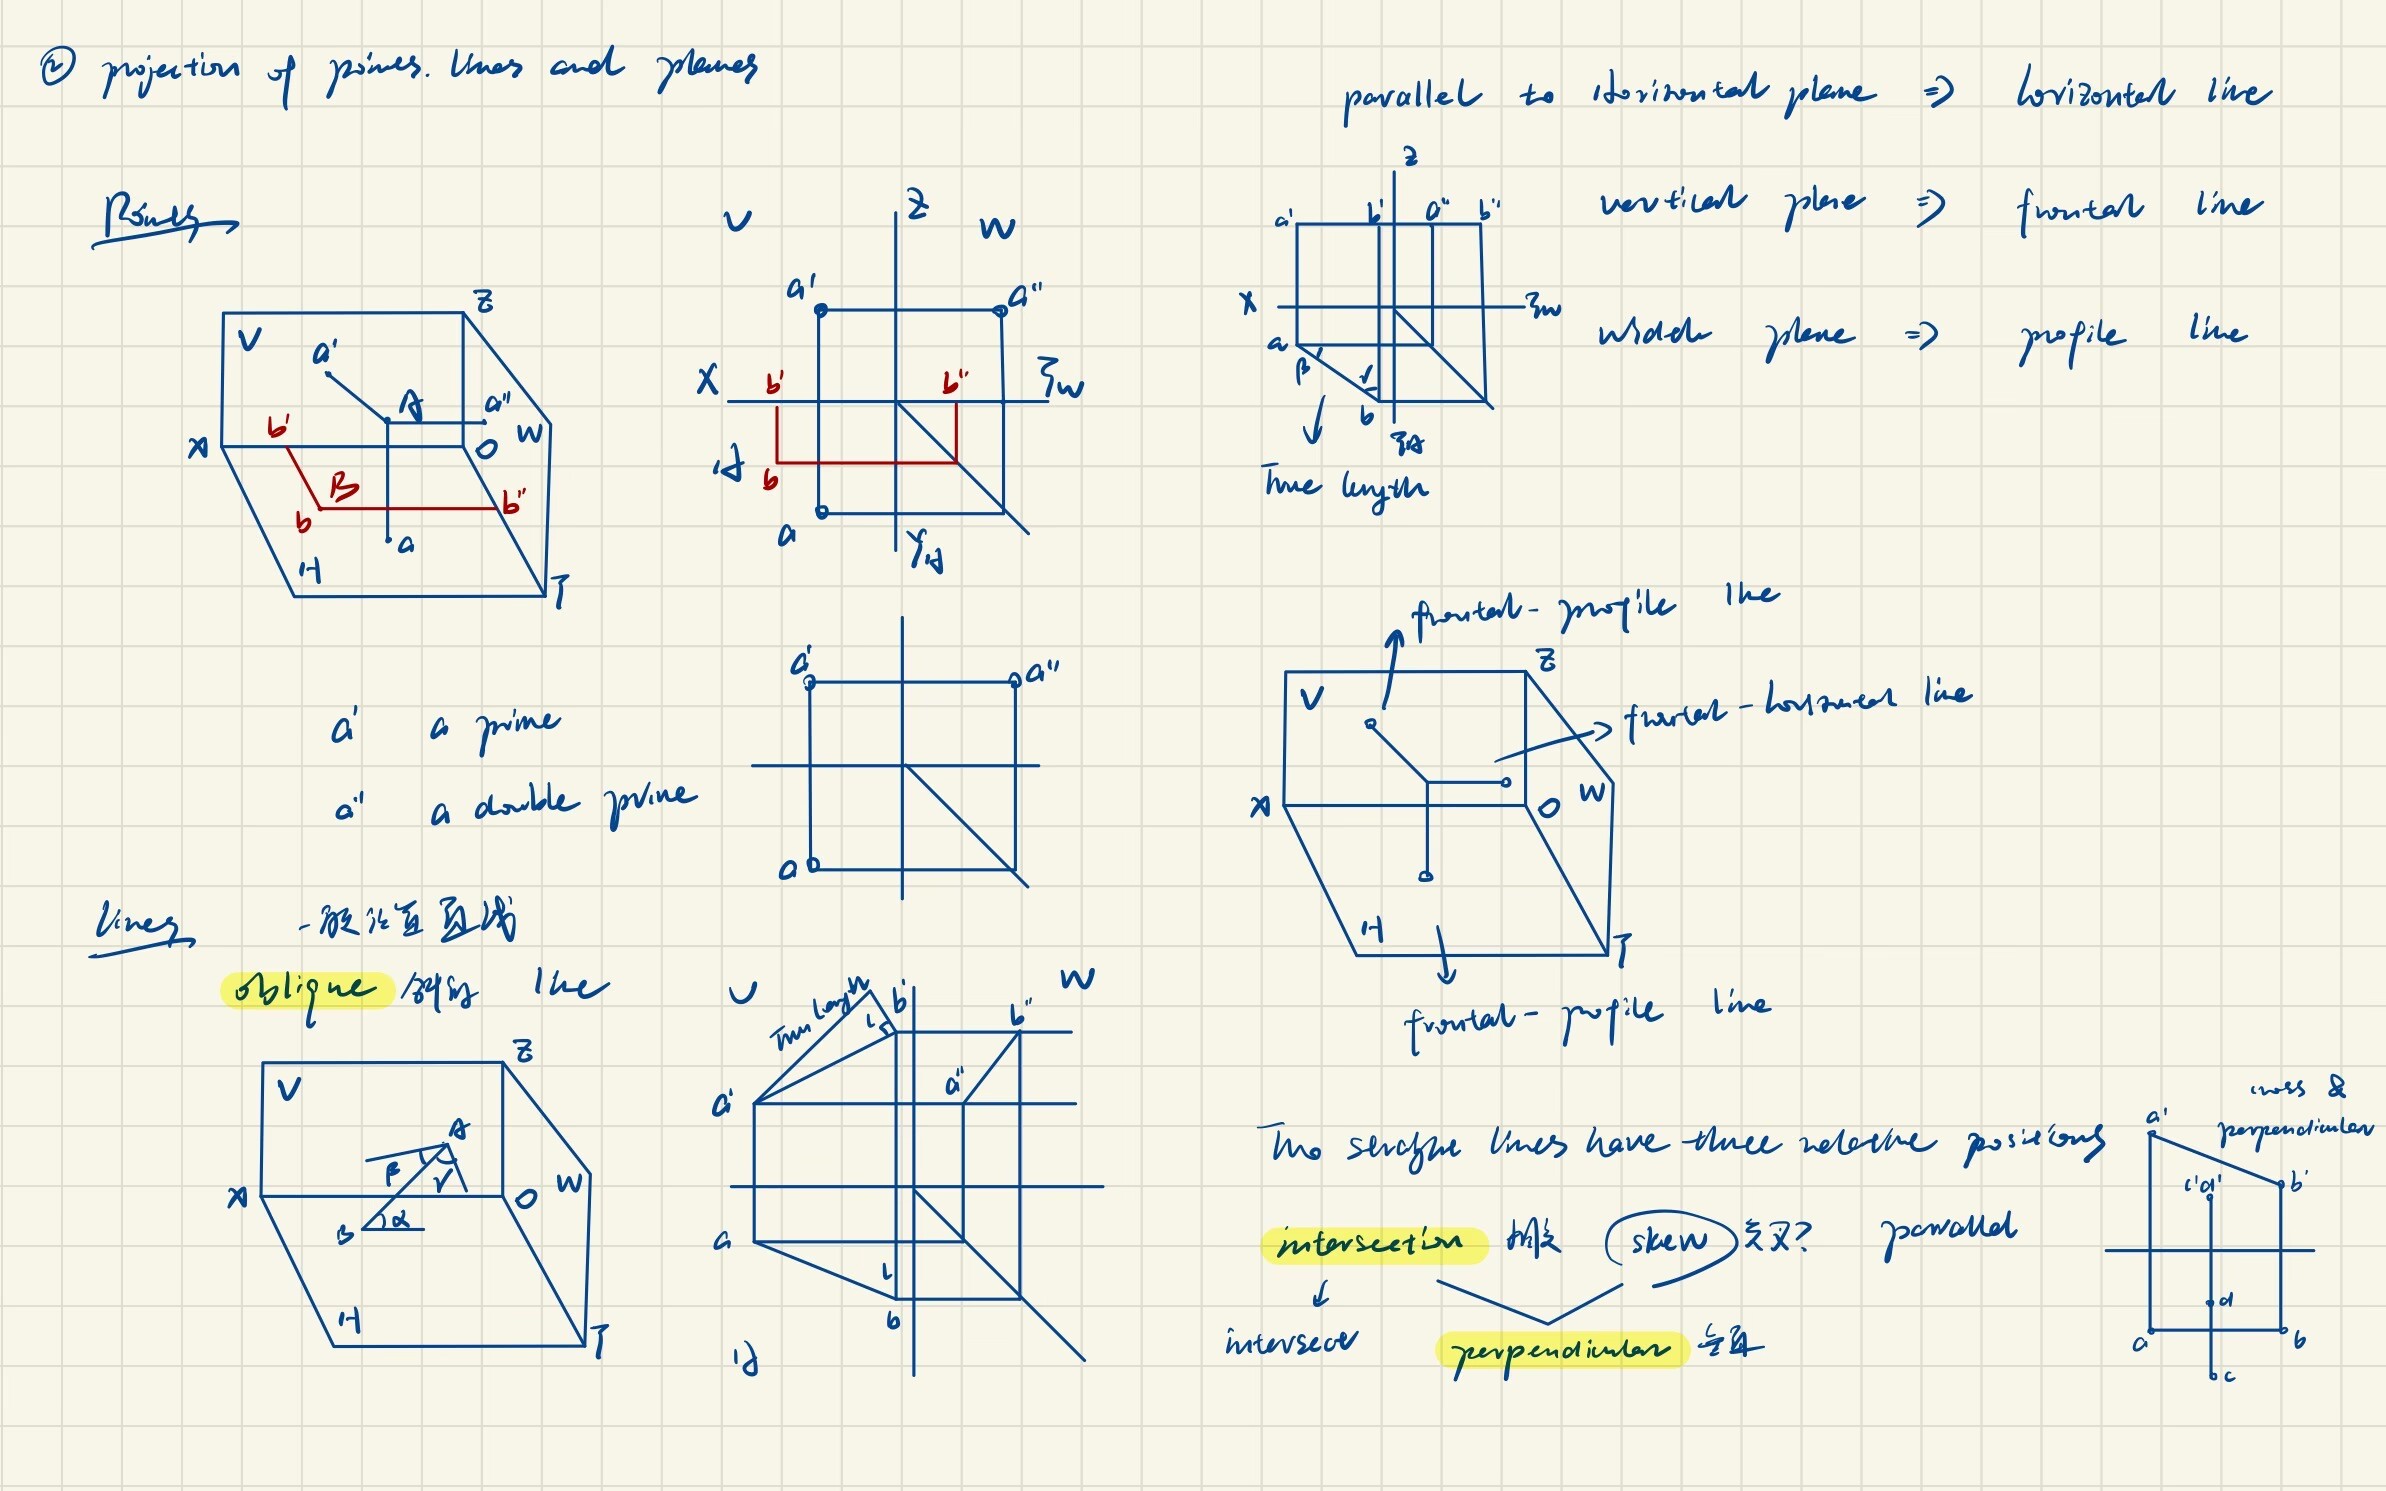 ② projection of points. lines and planes
Points
V
Z
a'
A
a''
W
b'
X
O
B
b
b''
a
H
Y
V
Z
W
a'
a''
X
b'
b''
Yw
H
b
a
YH
a' a prime
a'' a double prime
a'
a''
a
lines 一般位置直线
oblique 倾斜 line
V
Z
A
β
γ
X
O
W
B
α
H
Y
V
True length
L
b'
b''
W
a'
a''
a
L
b
H
parallel to Horizontal plane ⇒ horizontal line
vertical plane ⇒ frontal line
width plane ⇒ profile line
Z
a' b' a'' b''
X
Yw
a
β
γ
b
YH
True length
frontal - profile line
Z
V
frontal - horizontal line
W
X
O
H
Y
frontal - profile line
Two straight lines have three relative positions
intersection 相交 skew 交叉? parallel
intersect
perpendicular 垂直
cross &
perpendicular
a'
c'd'
b'
d
a
b
c